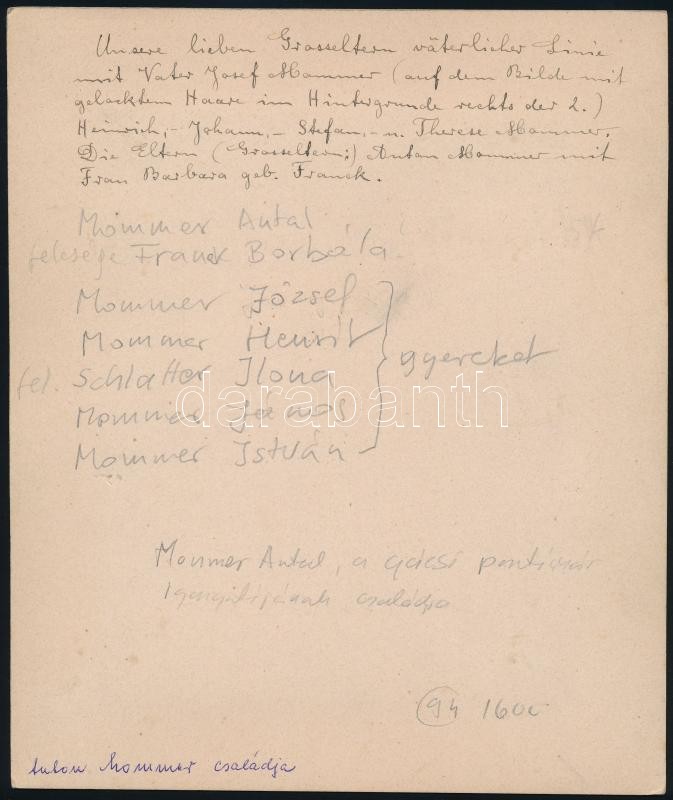 Unsere lieben Grosseltern väterlicher Linie
mit Vater Josef Mommer (auf dem Bilde mit
gelocktem Haare im Hintergrunde rechts der 2.)
Heinrich,- Johann,- Stefan,- u. Therese Mommer.
Die Eltern (Grosseltern:) Anton Mommer mit
Frau Barbara geb. Franck.
Mommer Antal
felesége Franck Borbála
Mommer József
Mommer Henrik
gyerekek
fel. Schlatter Ilona
darabanth
Mommer János
Mommer István
Mommer Antal, a gácsi posztógyár
családja
94 1600
Anton Mommer családja